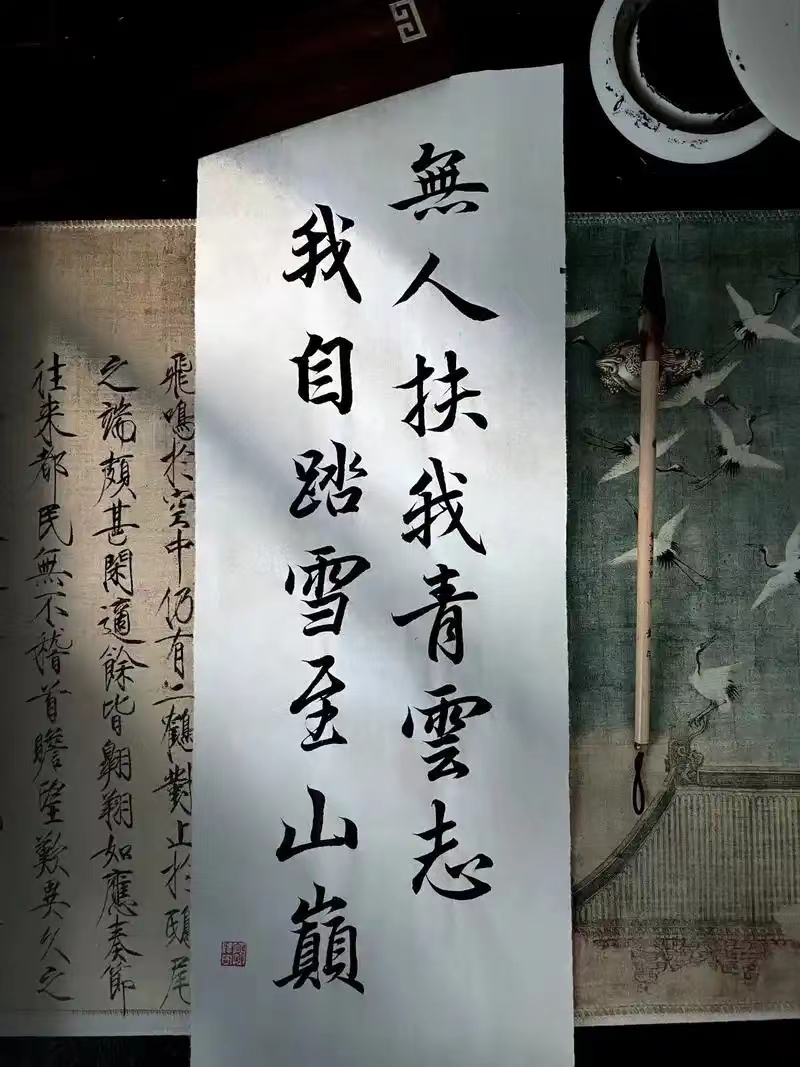 無人扶我青雲志
我自踏雪至山巔
飛鳴於空中仍有二鶴對止於鴟尾
之端頗甚閑適餘皆翱翔如應奏節
往來都民無不稽首瞻望歎異久之